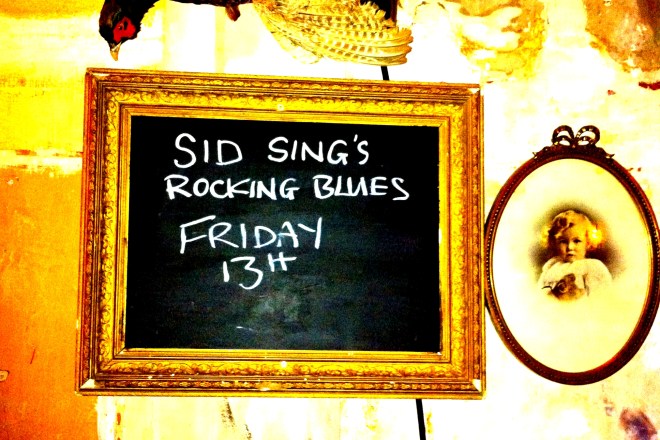 SID SING'S
ROCKING BLUES
FRIDAY
13H